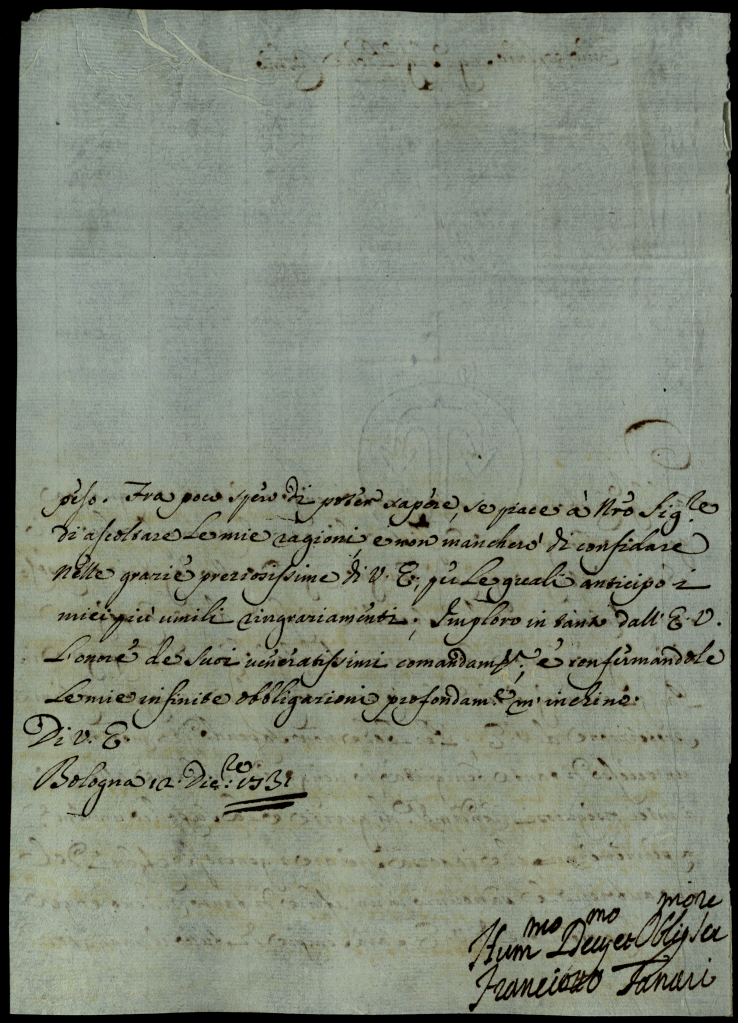 peso. Fra poco spero di poter sapere, se piace à Nr̃o Sig.re
di ascoltare le mie ragioni e non mancherò di confidare
nelle grazie preziosissime di V. E., p̃ le quali anticipo i
miei più umili ringraziamenti; Imploro in tanto dall' E. V.
l'onore de suoi veneratissimi comandam.ti, e confermandole
le mie infinite obbligazioni profondam.e m' inchino.
Di V. E.
Bologna 12. Dic.re 1731
Hum.mo Obblig. Ser.
Tanari